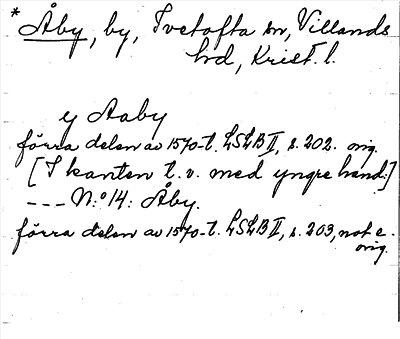 * Åby, by, Ivetofta sn, Villands
hd, Krist. l.
y Aaby
förra delen av 1570-t. LSLB II, s. 202. orig.
[I kanten t. v. med yngre hand:]
--- N:o 14: Åby.
förra delen av 1570-t. LSLB II, s. 203, not e.
orig.